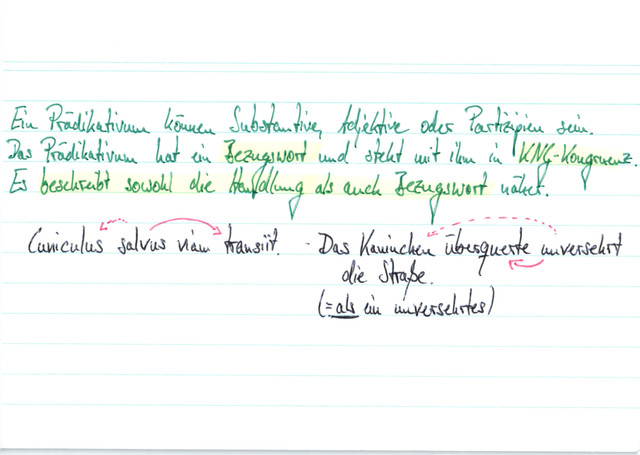 Ein Prädikativum können Substantive, Adjektive oder Partizipien sein.
Das Prädikativum hat ein Bezugswort und steht mit ihm in KNG-Kongruenz.
Es beschreibt sowohl die Handlung als auch Bezugswort näher.
Cuniculus salvus viam transiit. - Das Kaninchen überquerte unversehrt
die Straße.
(= als ein unversehrtes)